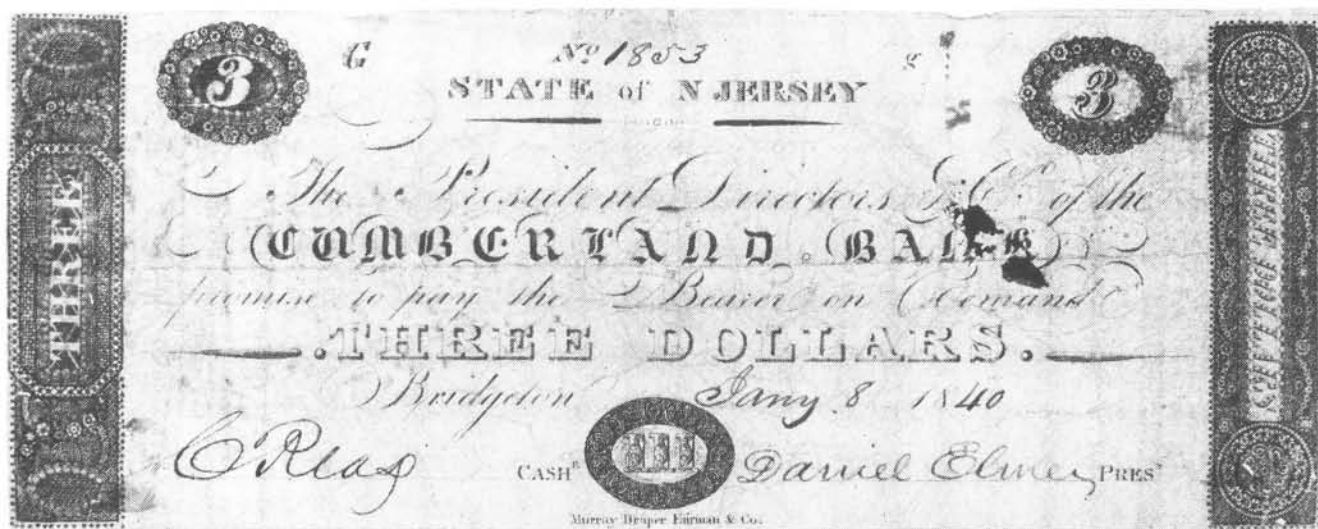 3 G No 1853 g 3
STATE of N JERSEY
The President Directors & Co. of the
CUMBERLAND BANK
promise to pay the Bearer on Demand
THREE DOLLARS.
Bridgeton Jany 8 1840
C Reas CASHR III Daniel Elmer PREST
Murray Draper Fairman & Co.
THREE